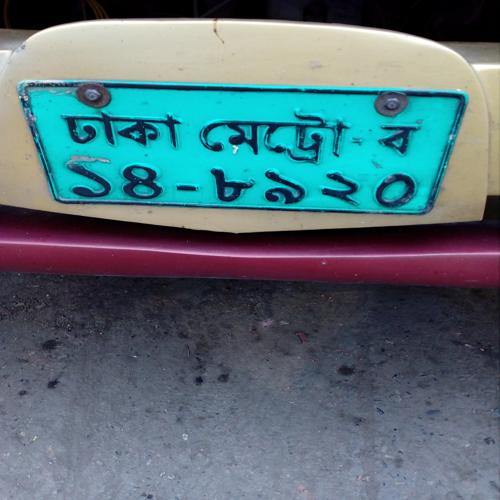 ঢাকা মেট্রো-ব
১৪-৮৯২০